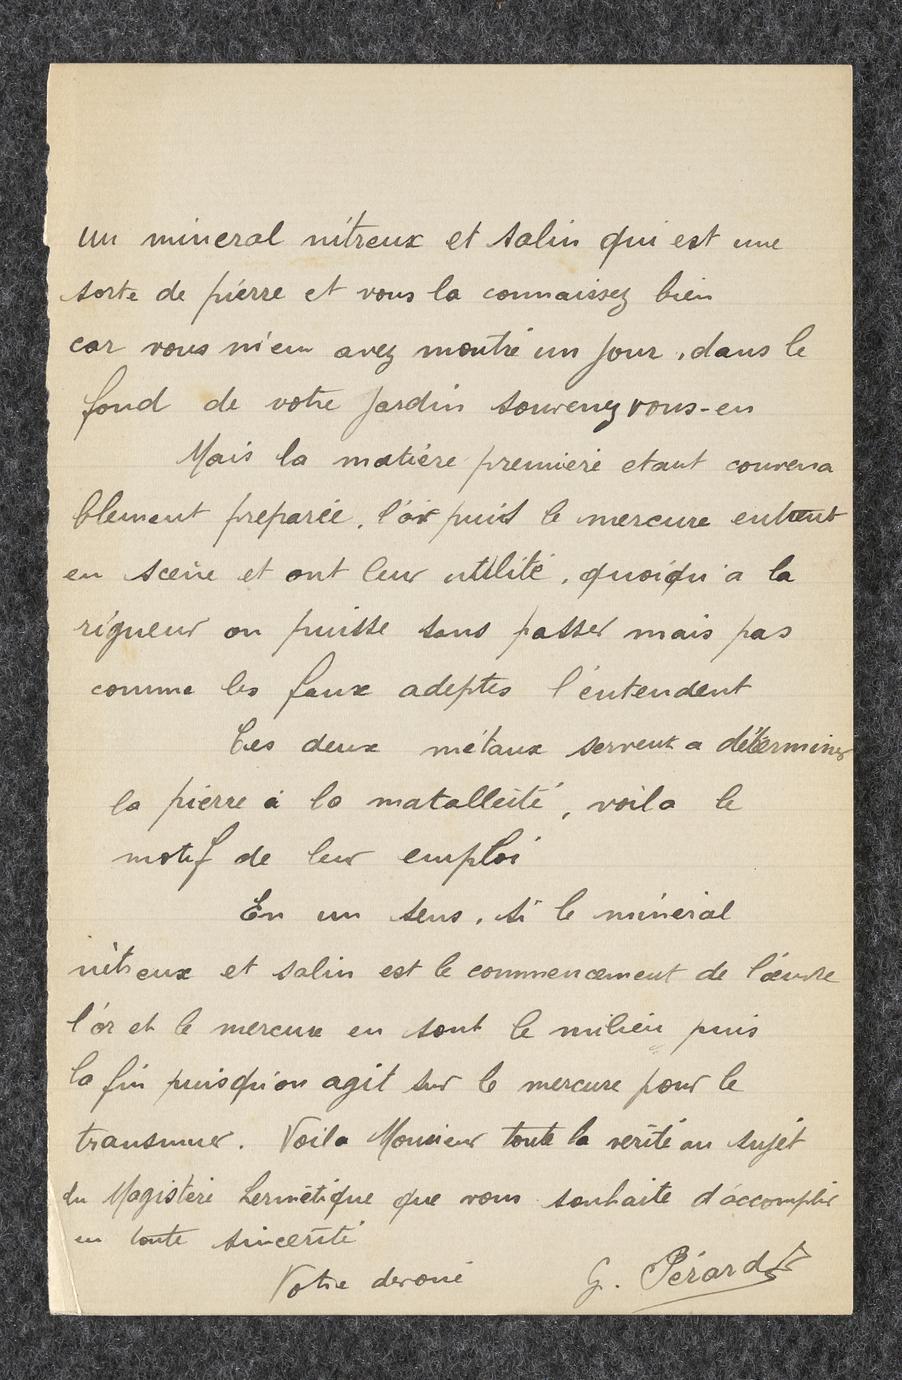 un mineral nitreux et salin qui est une
sorte de pierre et vous la connaissez bien
car vous m'en avez montré un Jour, dans le
fond de votre Jardin souvenez vous-en
Mais la matière première etant convena
blement preparée, l'or puis le mercure entrent
en scene et ont leur utilité, quoiqu'a la
rigueur on puisse sans passer mais pas
comme les faux adeptes l'entendent
Ces deux métaux servent a déterminer
la pierre à la matalleité, voila le
motif de leur emploi
En un sens, si le minéral
nitreux et salin est le commencement de l'œuvre
l'or et le mercure en sont le milieu puis
la fin puisqu'on agit sur le mercure pour le
transmuer. Voila Monsieur toute la verité au sujet
du Magistère hermétique que vous souhaite d'accomplir
en toute sincerité
Votre devoué G. Pérard